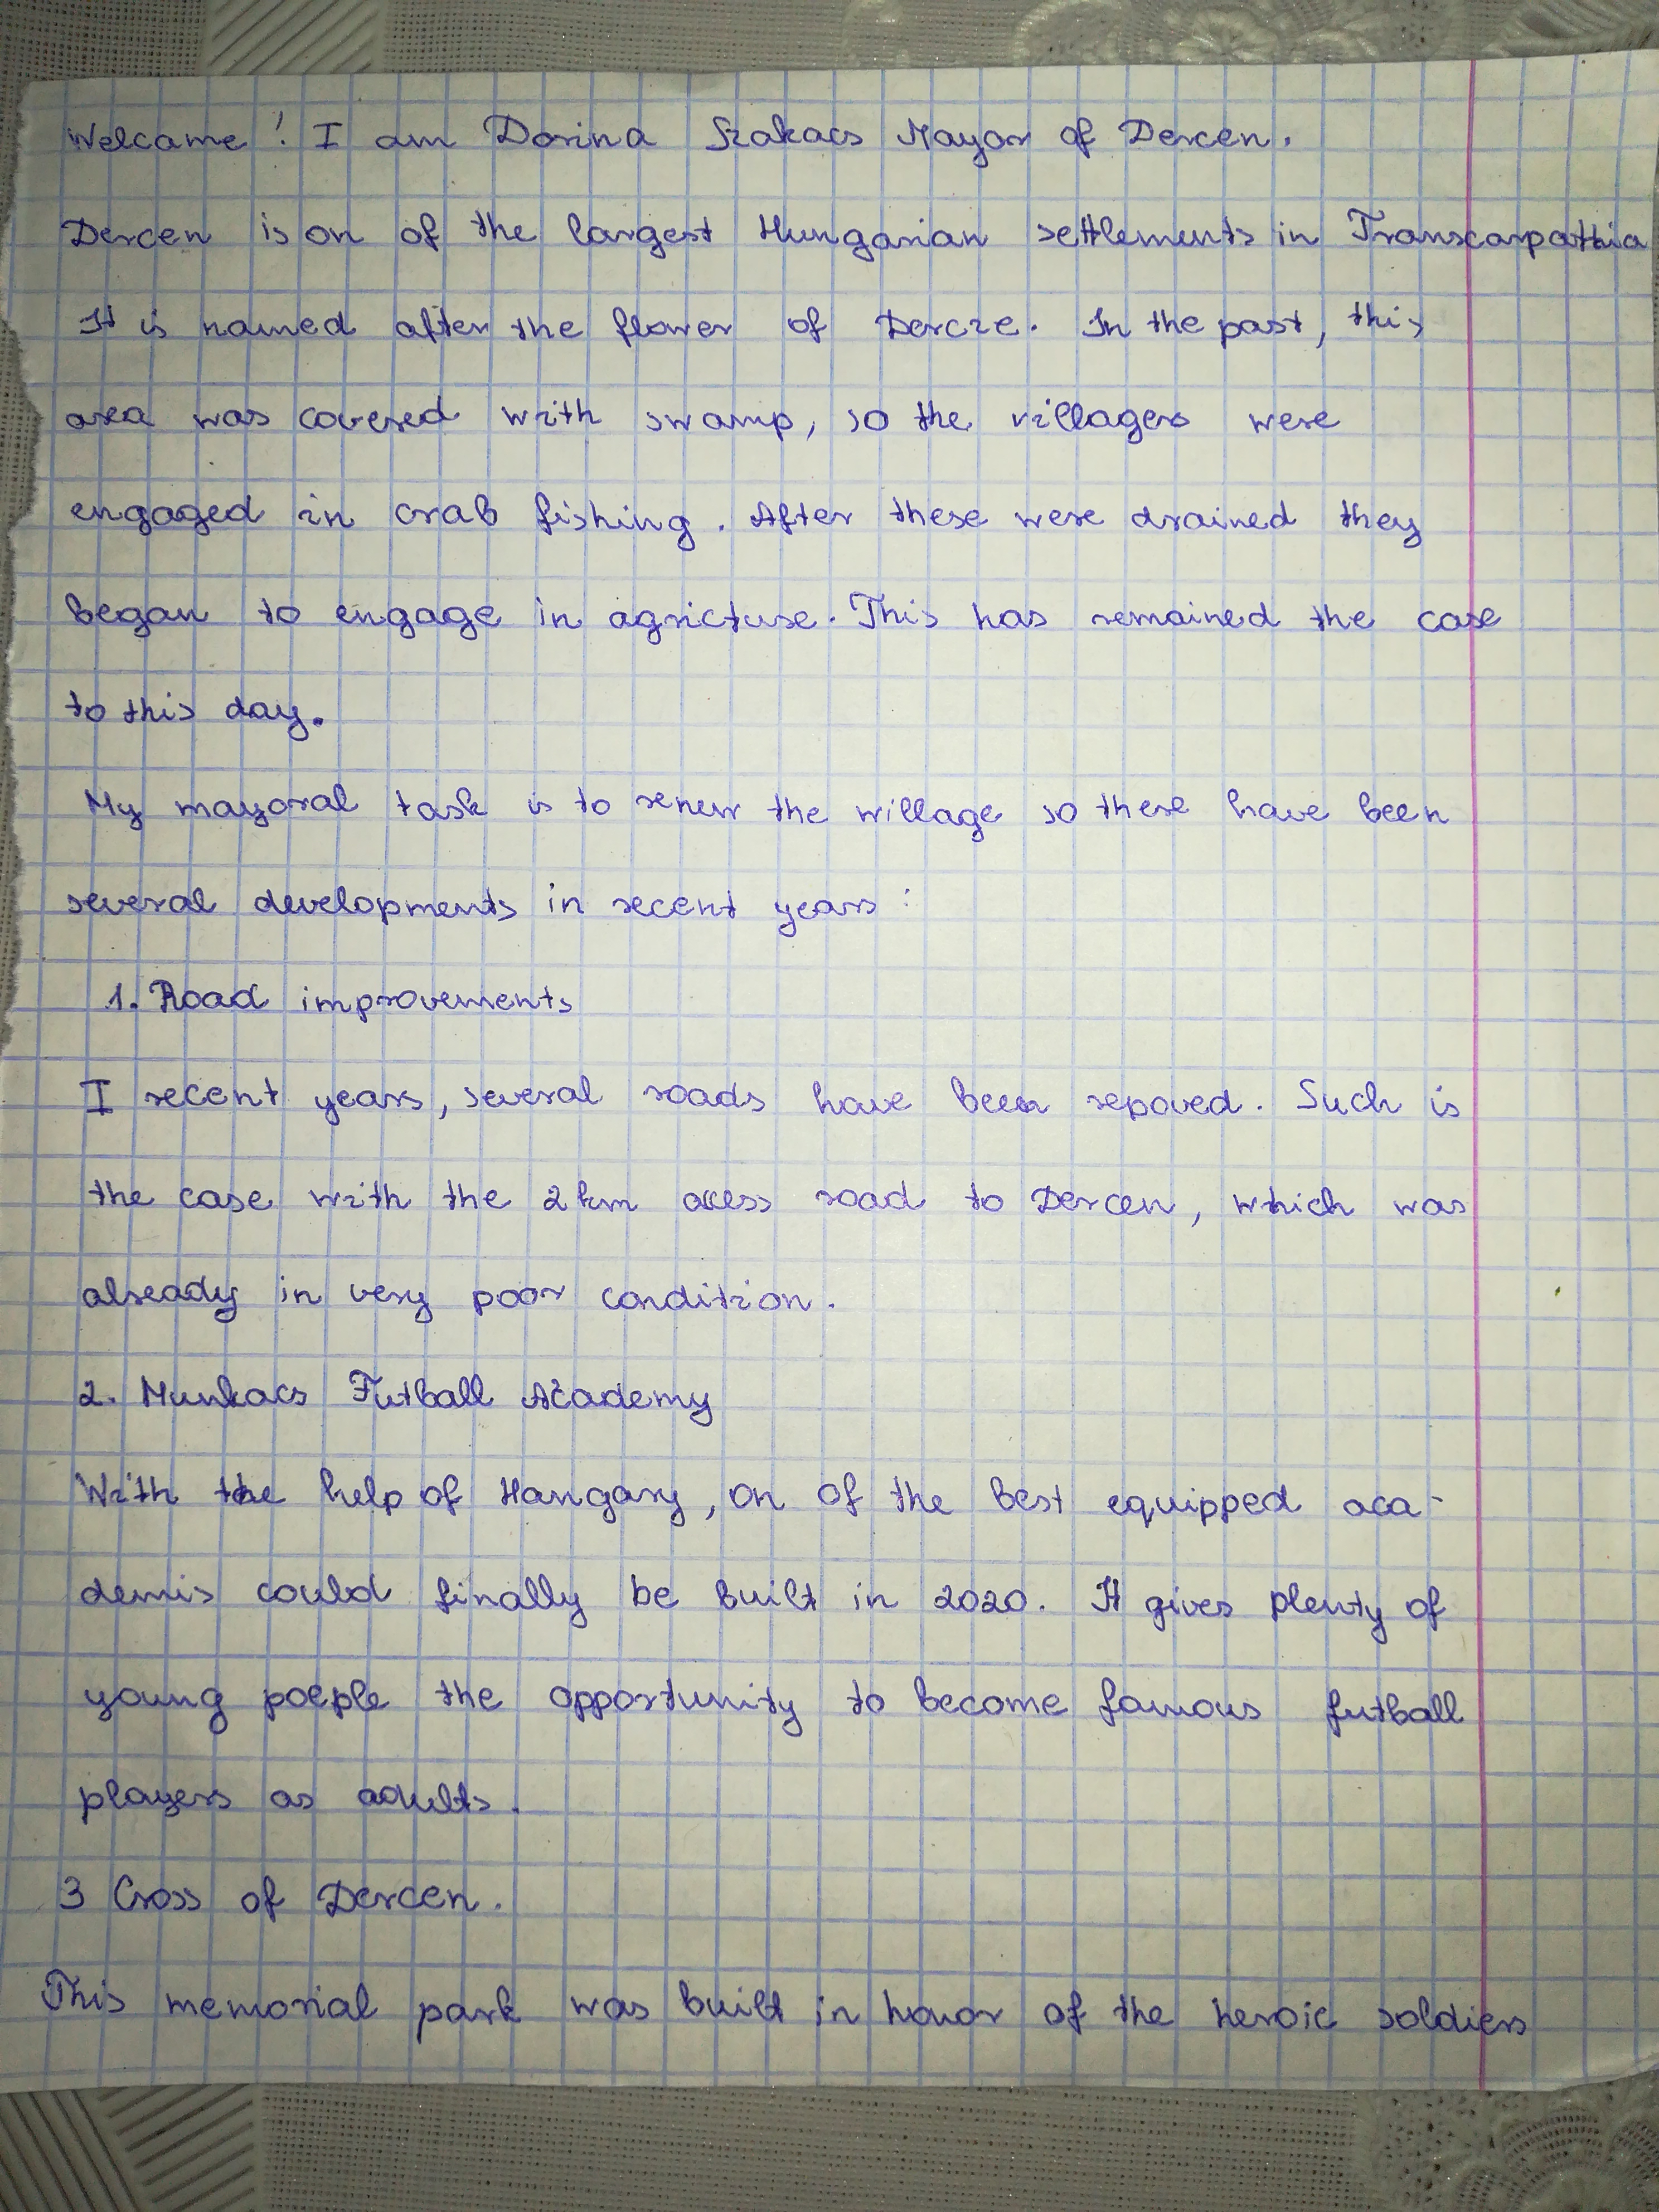 Welcame! I am Dorina Szakacs Mayor of Dercen.
Dercen is on of the largest Hungarian settlements in Transcarpathia
It is named after the flower of Dercze. In the past, this
area was covered with swamp, so the villagers were
engaged in crab fishing. After these were drained they
began to engage in agricture. This has remained the case
to this day.
My mayoral task is to renew the willage so there have been
several developments in recent years:
1. Road improvements
I recent years, several roads have been repoved. Such is
the case with the 2 km acess road to Dercen, which was
already in very poor condition.
2. Munkacs Futball Academy
With the help of Hangary, on of the best equipped aca-
demis could finally be built in 2020. It gives plenty of
young poeple the opportunity to become famous futball
players as adults.
3 Cross of Dercen.
This memorial park was built in honor of the heroic soldiers